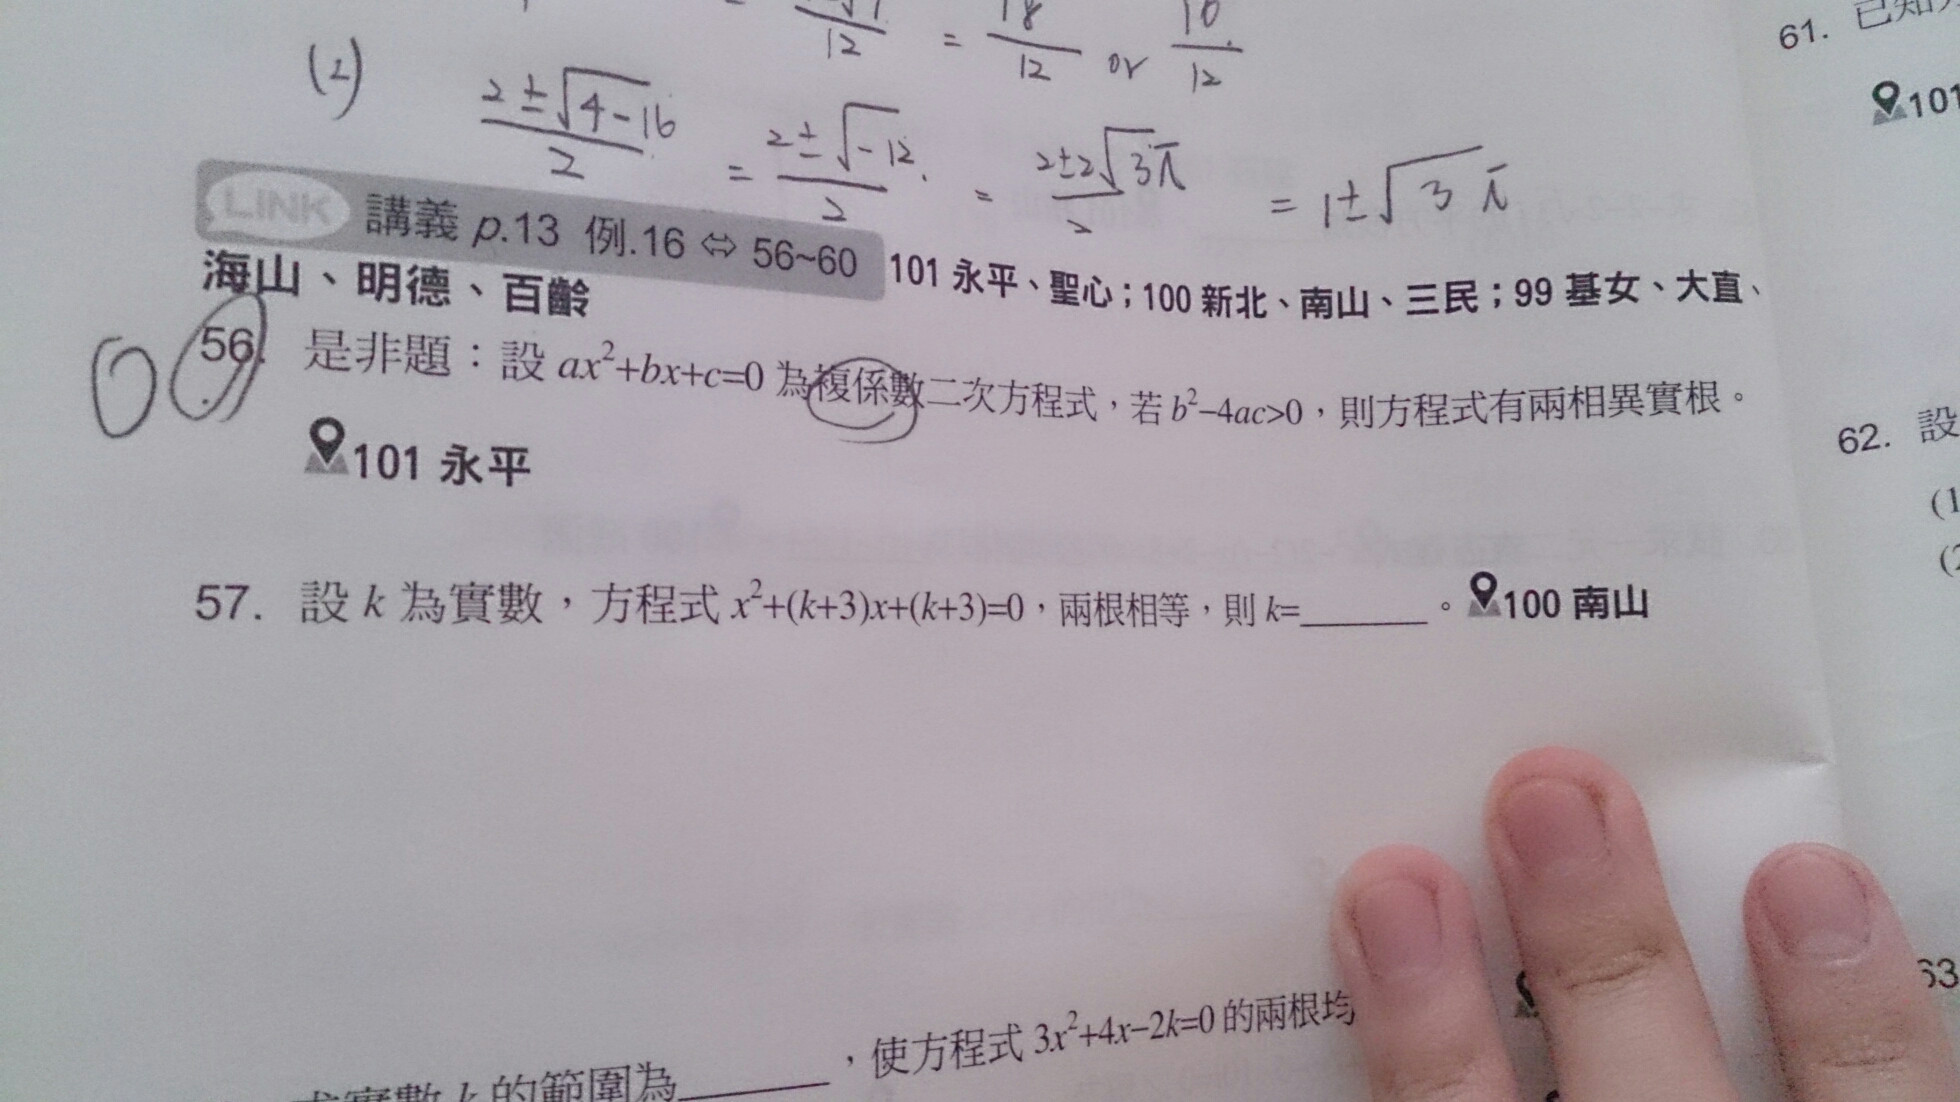 = 18/12 or 10/12
(2) (2±√4-16)/2 = (2±√-12)/2 = (2±2√3i)/2 = 1±√3 i
LINK 講義 p.13 例.16 ⇔ 56~60 101 永平、聖心；100 新北、南山、三民；99 基女、大直、
海山、明德、百齡
56. 是非題：設 ax²+bx+c=0 為複係數二次方程式，若 b²−4ac>0，則方程式有兩相異實根。
101 永平
57. 設 k 為實數，方程式 x²+(k+3)x+(k+3)=0，兩根相等，則 k=______。100 南山
，使方程式 3x²+4x−2k=0 的兩根均
求實數 k 的範圍為______
61. 已知
101
62. 設
(1
(2
63